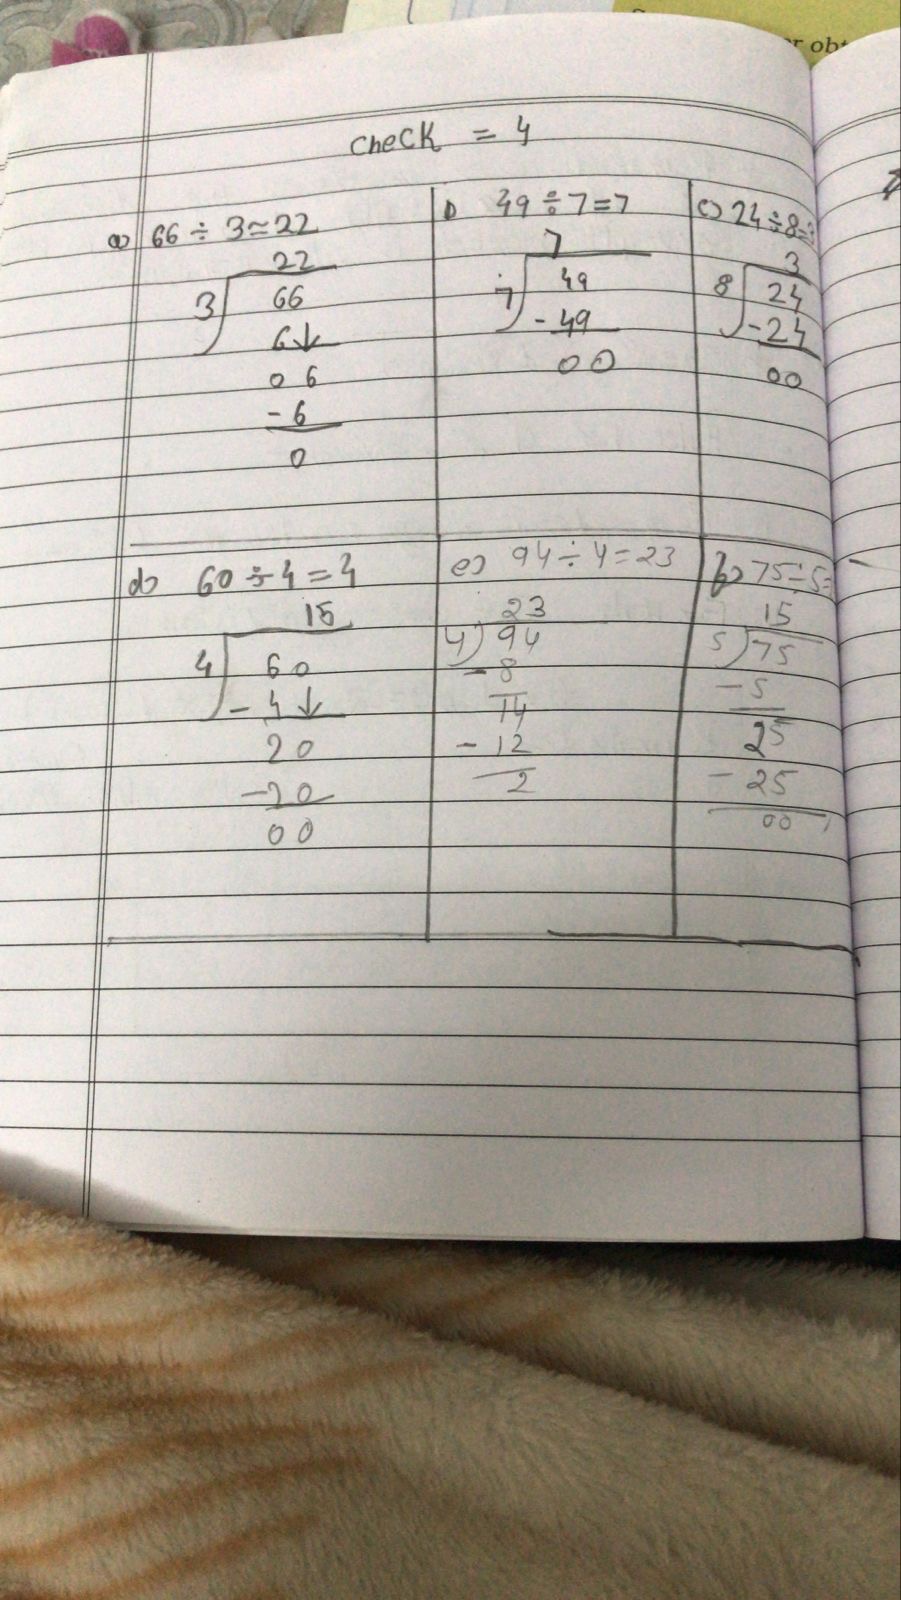 er obt
CheCK = 4
a) 66 ÷ 3 = 22
22
3 66
6↓
06
- 6
0
b 49 ÷ 7 = 7
7
7 49
- 49
00
c) 24 ÷ 8 =
3
8 24
- 24
00
d) 60 ÷ 4 = 4
15
4 60
- 4↓
20
- 20
00
e) 94 ÷ 4 = 23
23
4)94
- 8
14
- 12
2
f) 75 ÷ 5 =
15
5)75
- 5
25
- 25
00